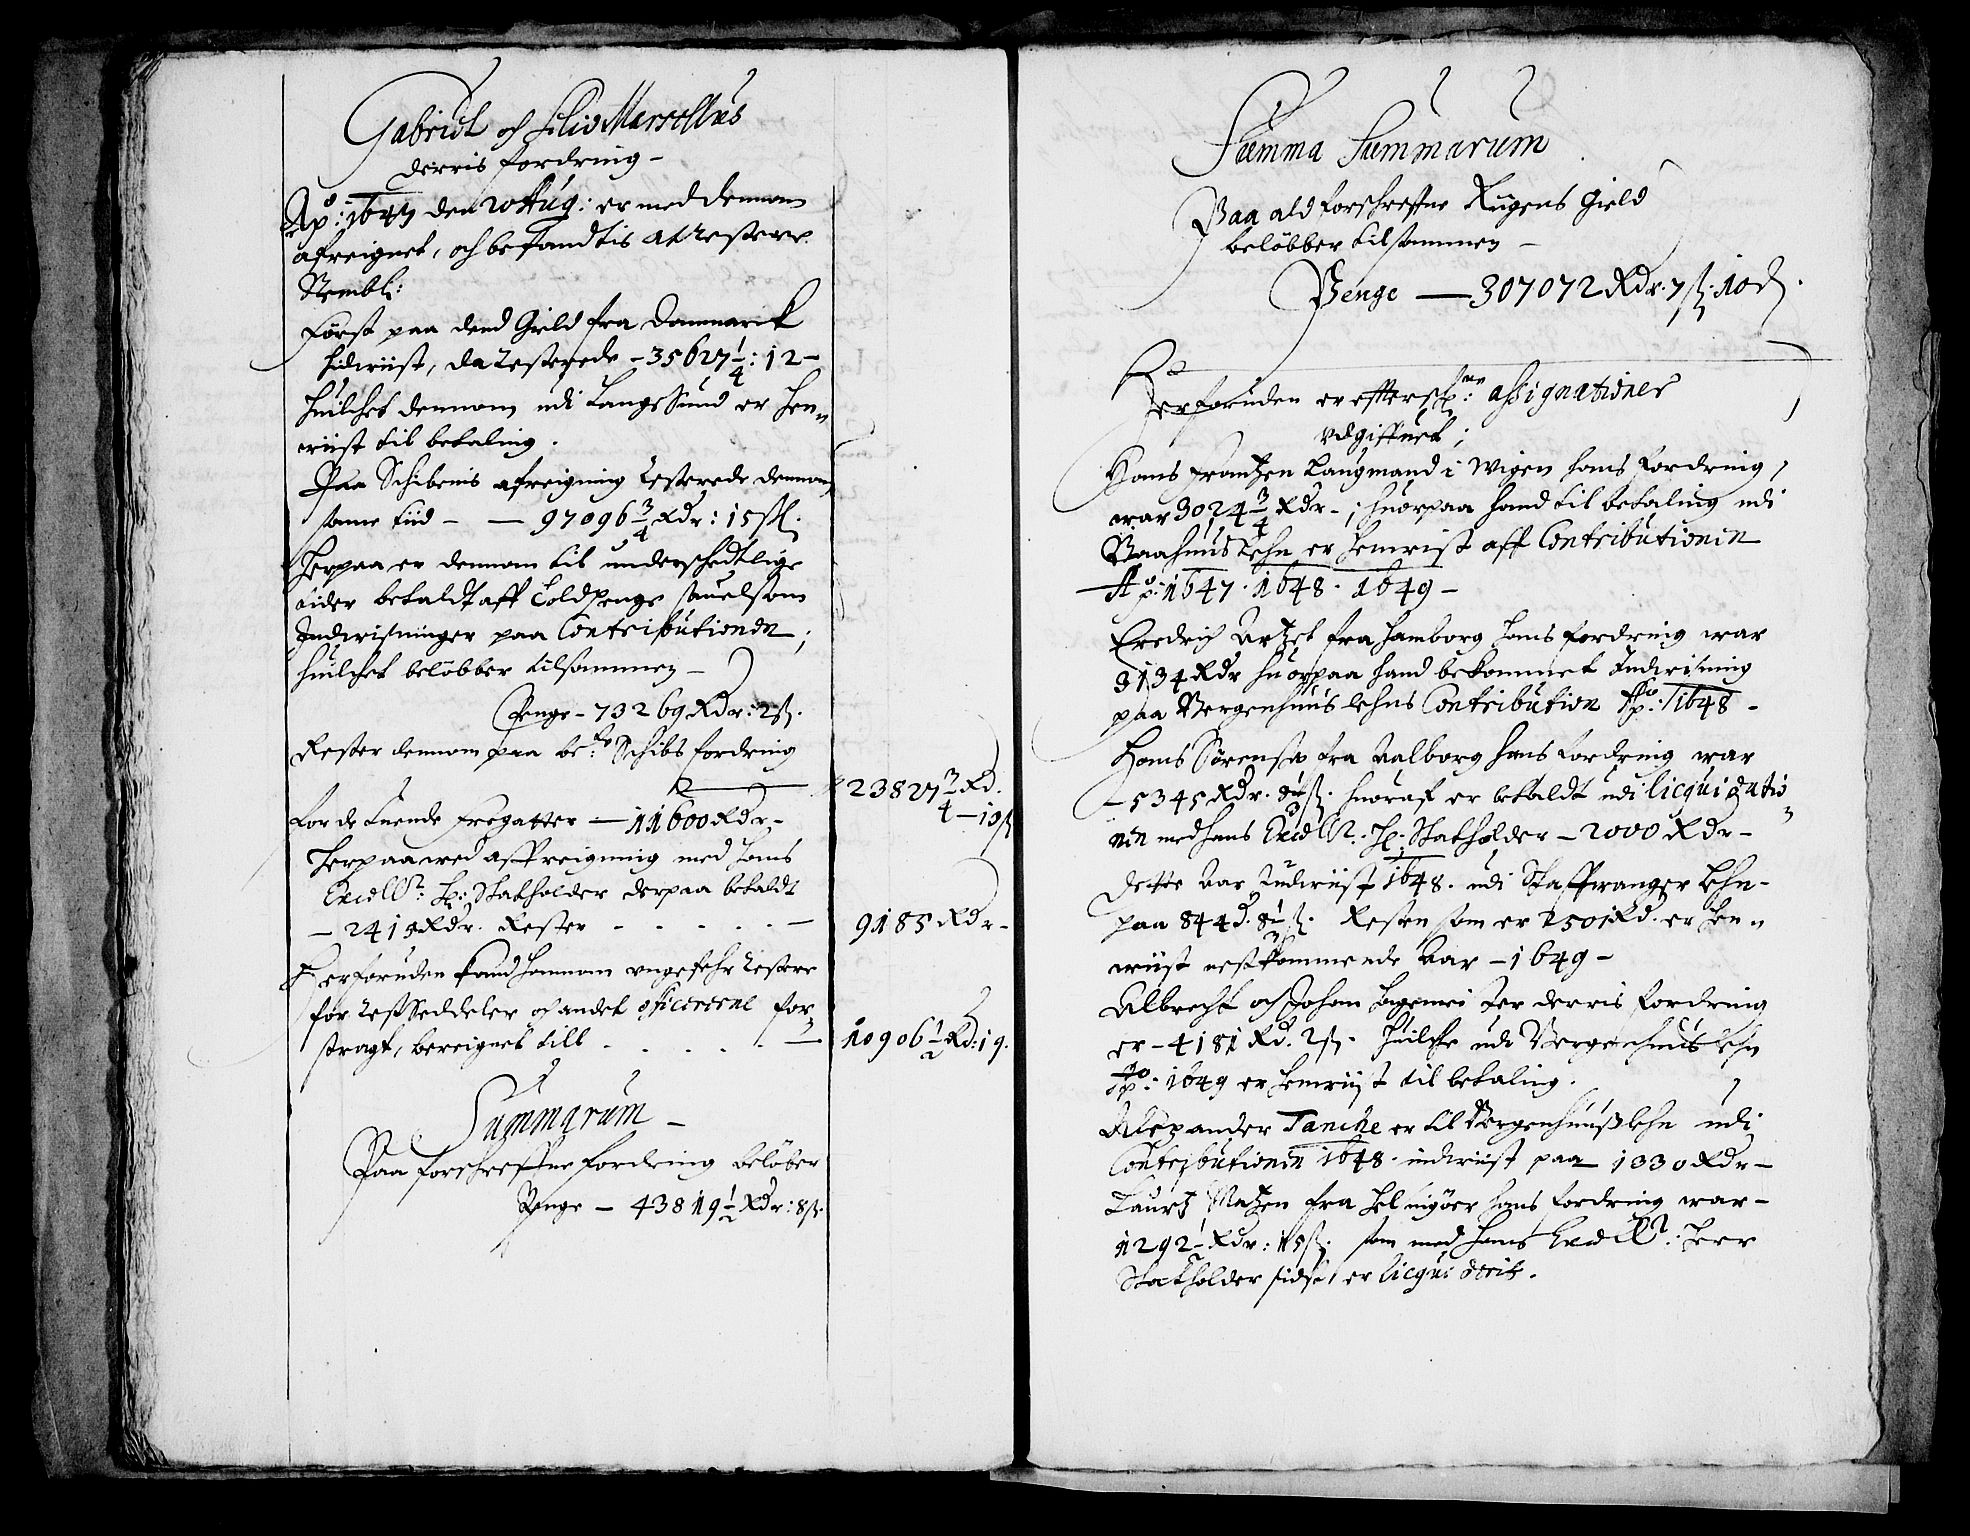 Gabriel och Celio Marcellus
derris fordring –
Ao: 1647 den 20 Aug: er med dennom
afreignet, och befandtis at restere
Nembl:
Først paa dend Gield fra Danmarck
hidviist, da resterede – 35627 1/4 : 12 –
huilchet dennom udi LangeSund er hen=
viist til betaling.
Paa Schibenis afreigning resterede dennom
samme tiid – — 97096 3/4 Rdr: 15 sk.
Herpaa er dennom til underschedtlige
tider betaldt aff Toldpenge saauelsom
Indvisninger paa Contributionen;
huilchet beløbber tilsammen –
Penge – 73269 Rdr: 2 sk.
Rester dennom paa be:te Schibs fordring
23827 3/4 Rd. – 13 sk
For de tuende Fregatter — 11600 Rdr –
Herpaa ved affreigning med hans
Excell: H: Statholder derpaa betaldt
– 2415 Rdr. Rester – – – – – –
9185 Rdr –
Herforuden kand hannom ungefehr restere
for restSeddeler och andet officererne for=
stragt, bereignet till – – – – —
10906 1/2 Rd: 19.
Summarum –
Paa forschreffne fordring beløber
Penge – 43819 1/2 Rdr: 8 sk.
Summa Summarum
Paa ald forschreffne Rigens Gield
beløbber tilsammen –
Penge — 307072 Rdr. 7 sk. 10 d.
Herforuden er effterschne: assignationer
udgiffuet;
Hans Frantzen Laugmand i Wigen hans fordring,
war 3024 3/4 Rdr –; huorpaa hand til betaling udi
Baahuus Lehn er henvist aff Contributionen
Ao: 1647. 1648. 1649 –
Fredrich Artzet fra Hamborg hans fordring war
3134 Rdr huorpaa hand bekommet Indvisning
paa Bergenhuus lehns Contribution Ao: 1648 –
Hans Sørensøn fra Aalborg hans fordring war
– 5345 Rdr. 8 1/2 sk. huoraf er betaldt udi licquidatio=
nen med hans Excell: H: Statholder – 2000 Rdr –
dette Aar Indviist 1648. udi Staffuanger Lehn –
paa 844 d. 8 1/2 sk. Resten som er 2501 Rd. er hen=
viist nestkommende Aar – 1649 –
Albrecht och Johan Hagemeister derris fordring
er – 4181 Rd. 2 sk. huilche udi Bergenhuus lehn
Ao: 1649 er henviist til betaling.
Alexander Tanche er til Bergenhuuß lehn udi
Contributionen 1648. indviist paa – 1030 Rdr –
Lauritz Matzen fra Helsingøer hans fordring war –
1292 1/2 Rdr: 15 sk. som med hans Excell: Herr
Statholder sidst er licquiderit.